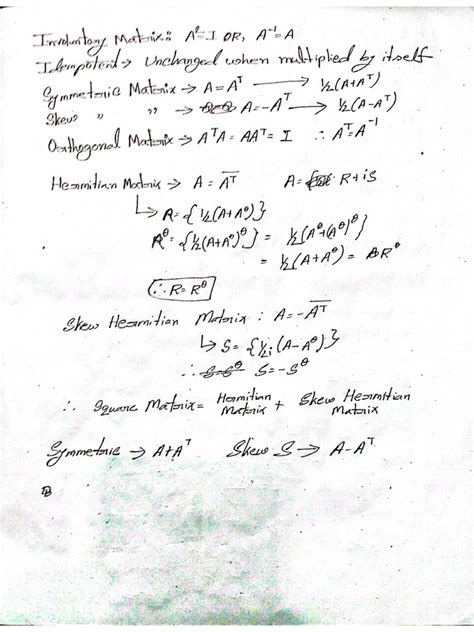 Involuntary Matrix: A² = I OR, A⁻¹ = A
Idempotent → Unchanged when multiplied by itself
Symmetric Matrix → A = Aᵀ → ½(A+Aᵀ)
Skew " " → A = -Aᵀ → ½(A-Aᵀ)
Orthogonal Matrix → AᵀA = AAᵀ = I ∴ Aᵀ = A⁻¹
Hermitian Matrix → A = A̅ᵀ̅ A = R + iS
↳ R = {½(A+A^θ)}
R^θ = {½(A+A^θ)^θ} = ½(A^θ+(A^θ)^θ)
= ½(A+A^θ) = R^θ
∴ R = R^θ
Skew Hermitian Matrix : A = -A̅ᵀ̅
↳ S = {½i (A-A^θ)}
∴ S = -S^θ
∴ Square Matrix = Hermitian Matrix + Skew Hermitian Matrix
Symmetric → A+Aᵀ Skew S → A-Aᵀ